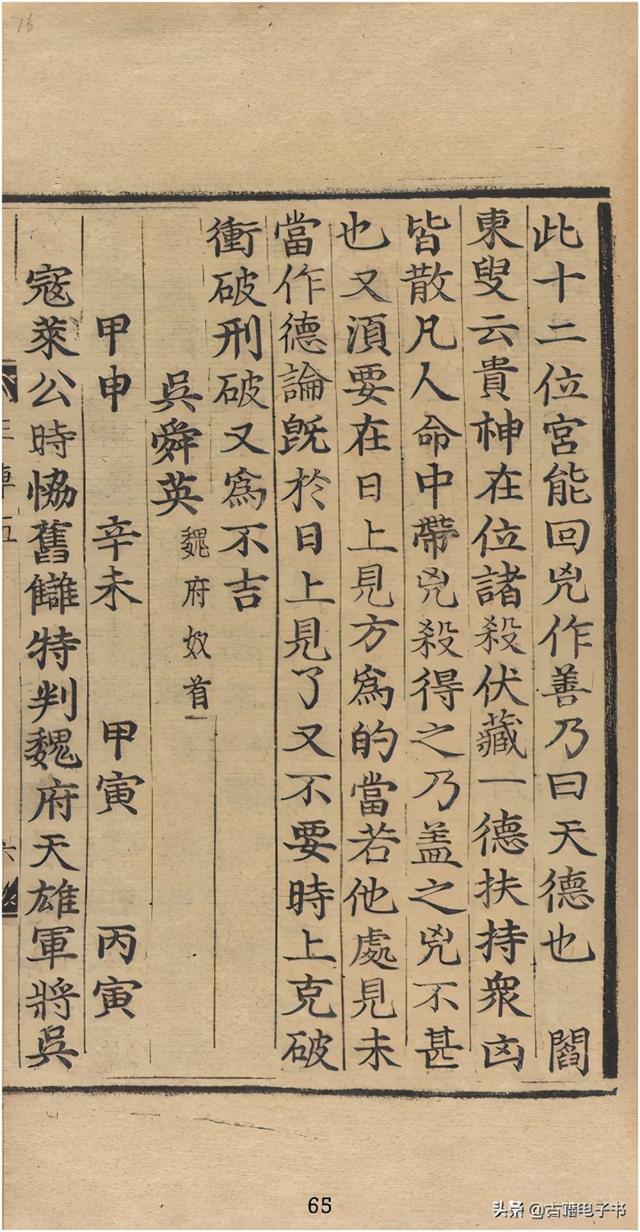 此十二位宮能回兇作善乃曰天德也　閻
東叟云貴神在位諸殺伏藏一德扶持衆凶
皆散凡人命中帶兇殺得之乃盖之兇不甚
也又湏要在日上見方爲的當若他處見未
當作德論旣於日上見了又不要時上克破
衝破刑破又爲不吉
吳舜英 魏府奴首
甲申　辛未　甲寅　丙寅
寇萊公時恊舊讎特判魏府天雄軍將吳
六
76
65
头条 @古籍电子书